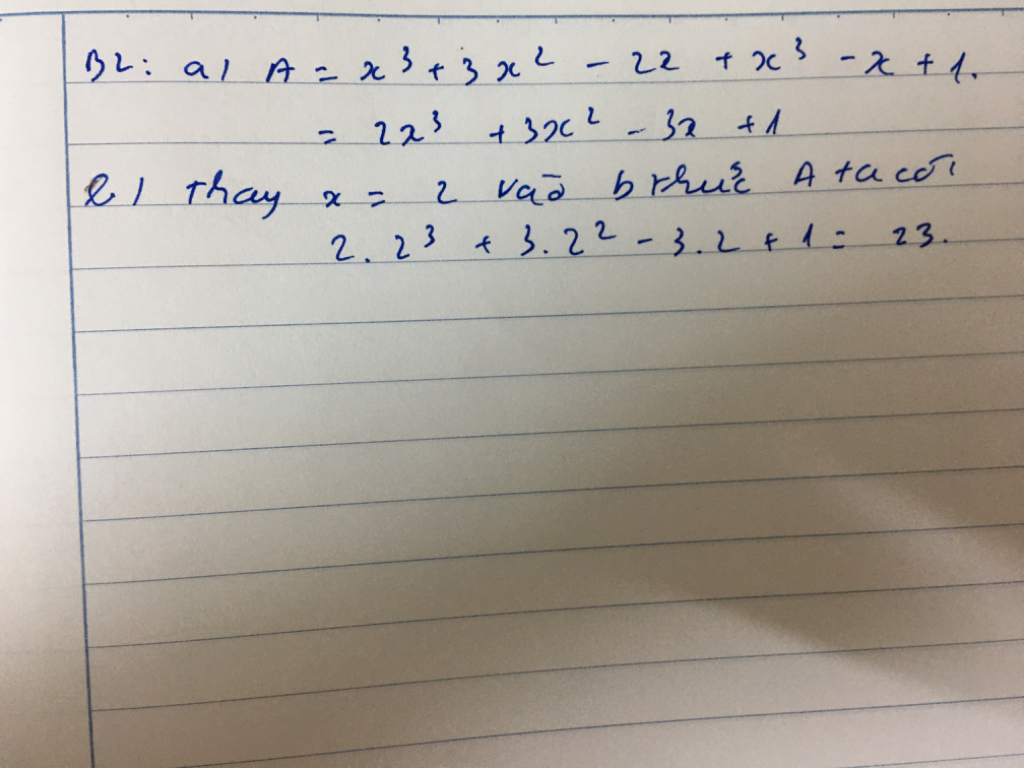 B2: a) A = x³ + 3x² - 2x + x³ - x + 1.
= 2x³ + 3x² - 3x + 1
b) thay x = 2 vào bthức A ta có:
2.2³ + 3.2² - 3.2 + 1 = 23.